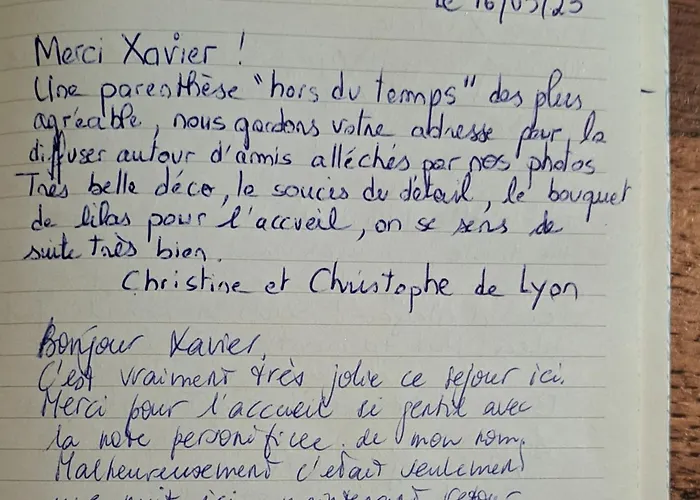 Le 16/05/23
Merci Xavier !
Une parenthèse "hors du temps" des plus
agréable, nous gardons votre adresse pour la
diffuser autour d'amis alléchés par nos photos
Très belle déco, le soucis du détail, le bouquet
de lilas pour l'accueil, on se sens de
suite très bien.
Christine et Christophe de Lyon
Bonjour Xavier,
C'est vraiment très jolie ce sejour ici.
Merci pour l'accueil si gentil avec
la note personificee de mon nom.
Malheureusement c'était seulement
une nuit ici, maintenant retour